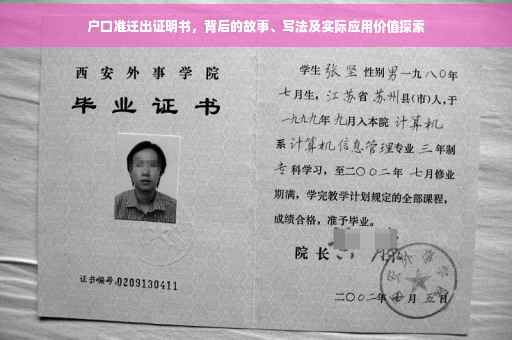 户口准迁出证明书，背后的故事、写法及实际应用价值探索
西安外事学院
毕业证书
证书编号:0209130411
学生 张坚 性别 男 一九八〇年
七月生，江苏省 苏州 县(市)人,于
一九九九年 九月入本院 计算机
系 计算机信息管理专业 三 年制
专 科学习，至二〇〇二年 七月修业
期满，学完教学计划规定的全部课程，
成绩合格，准予毕业。
院长
二〇〇二年 月 五日